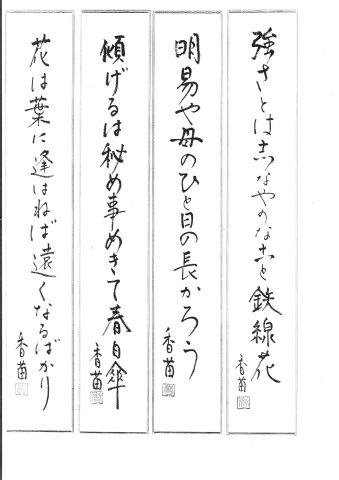 強さとはしなやかなこと鉄線花
香苗
明易や母のひと日の長かろう
香苗
傾げるは秘め事めきて春日傘
香苗
花は葉に逢はねば遠くなるばかり
香苗